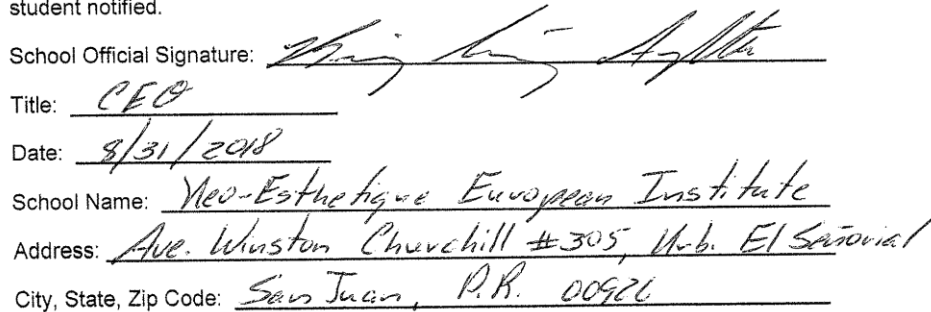 student notified.
School Official Signature:
Title: CEO
Date: 8/31/2018
School Name: Neo-Esthetique European Institute
Address: Ave. Winston Churchill #305, Urb. El Señorial
City, State, Zip Code: San Juan, P.R. 00926